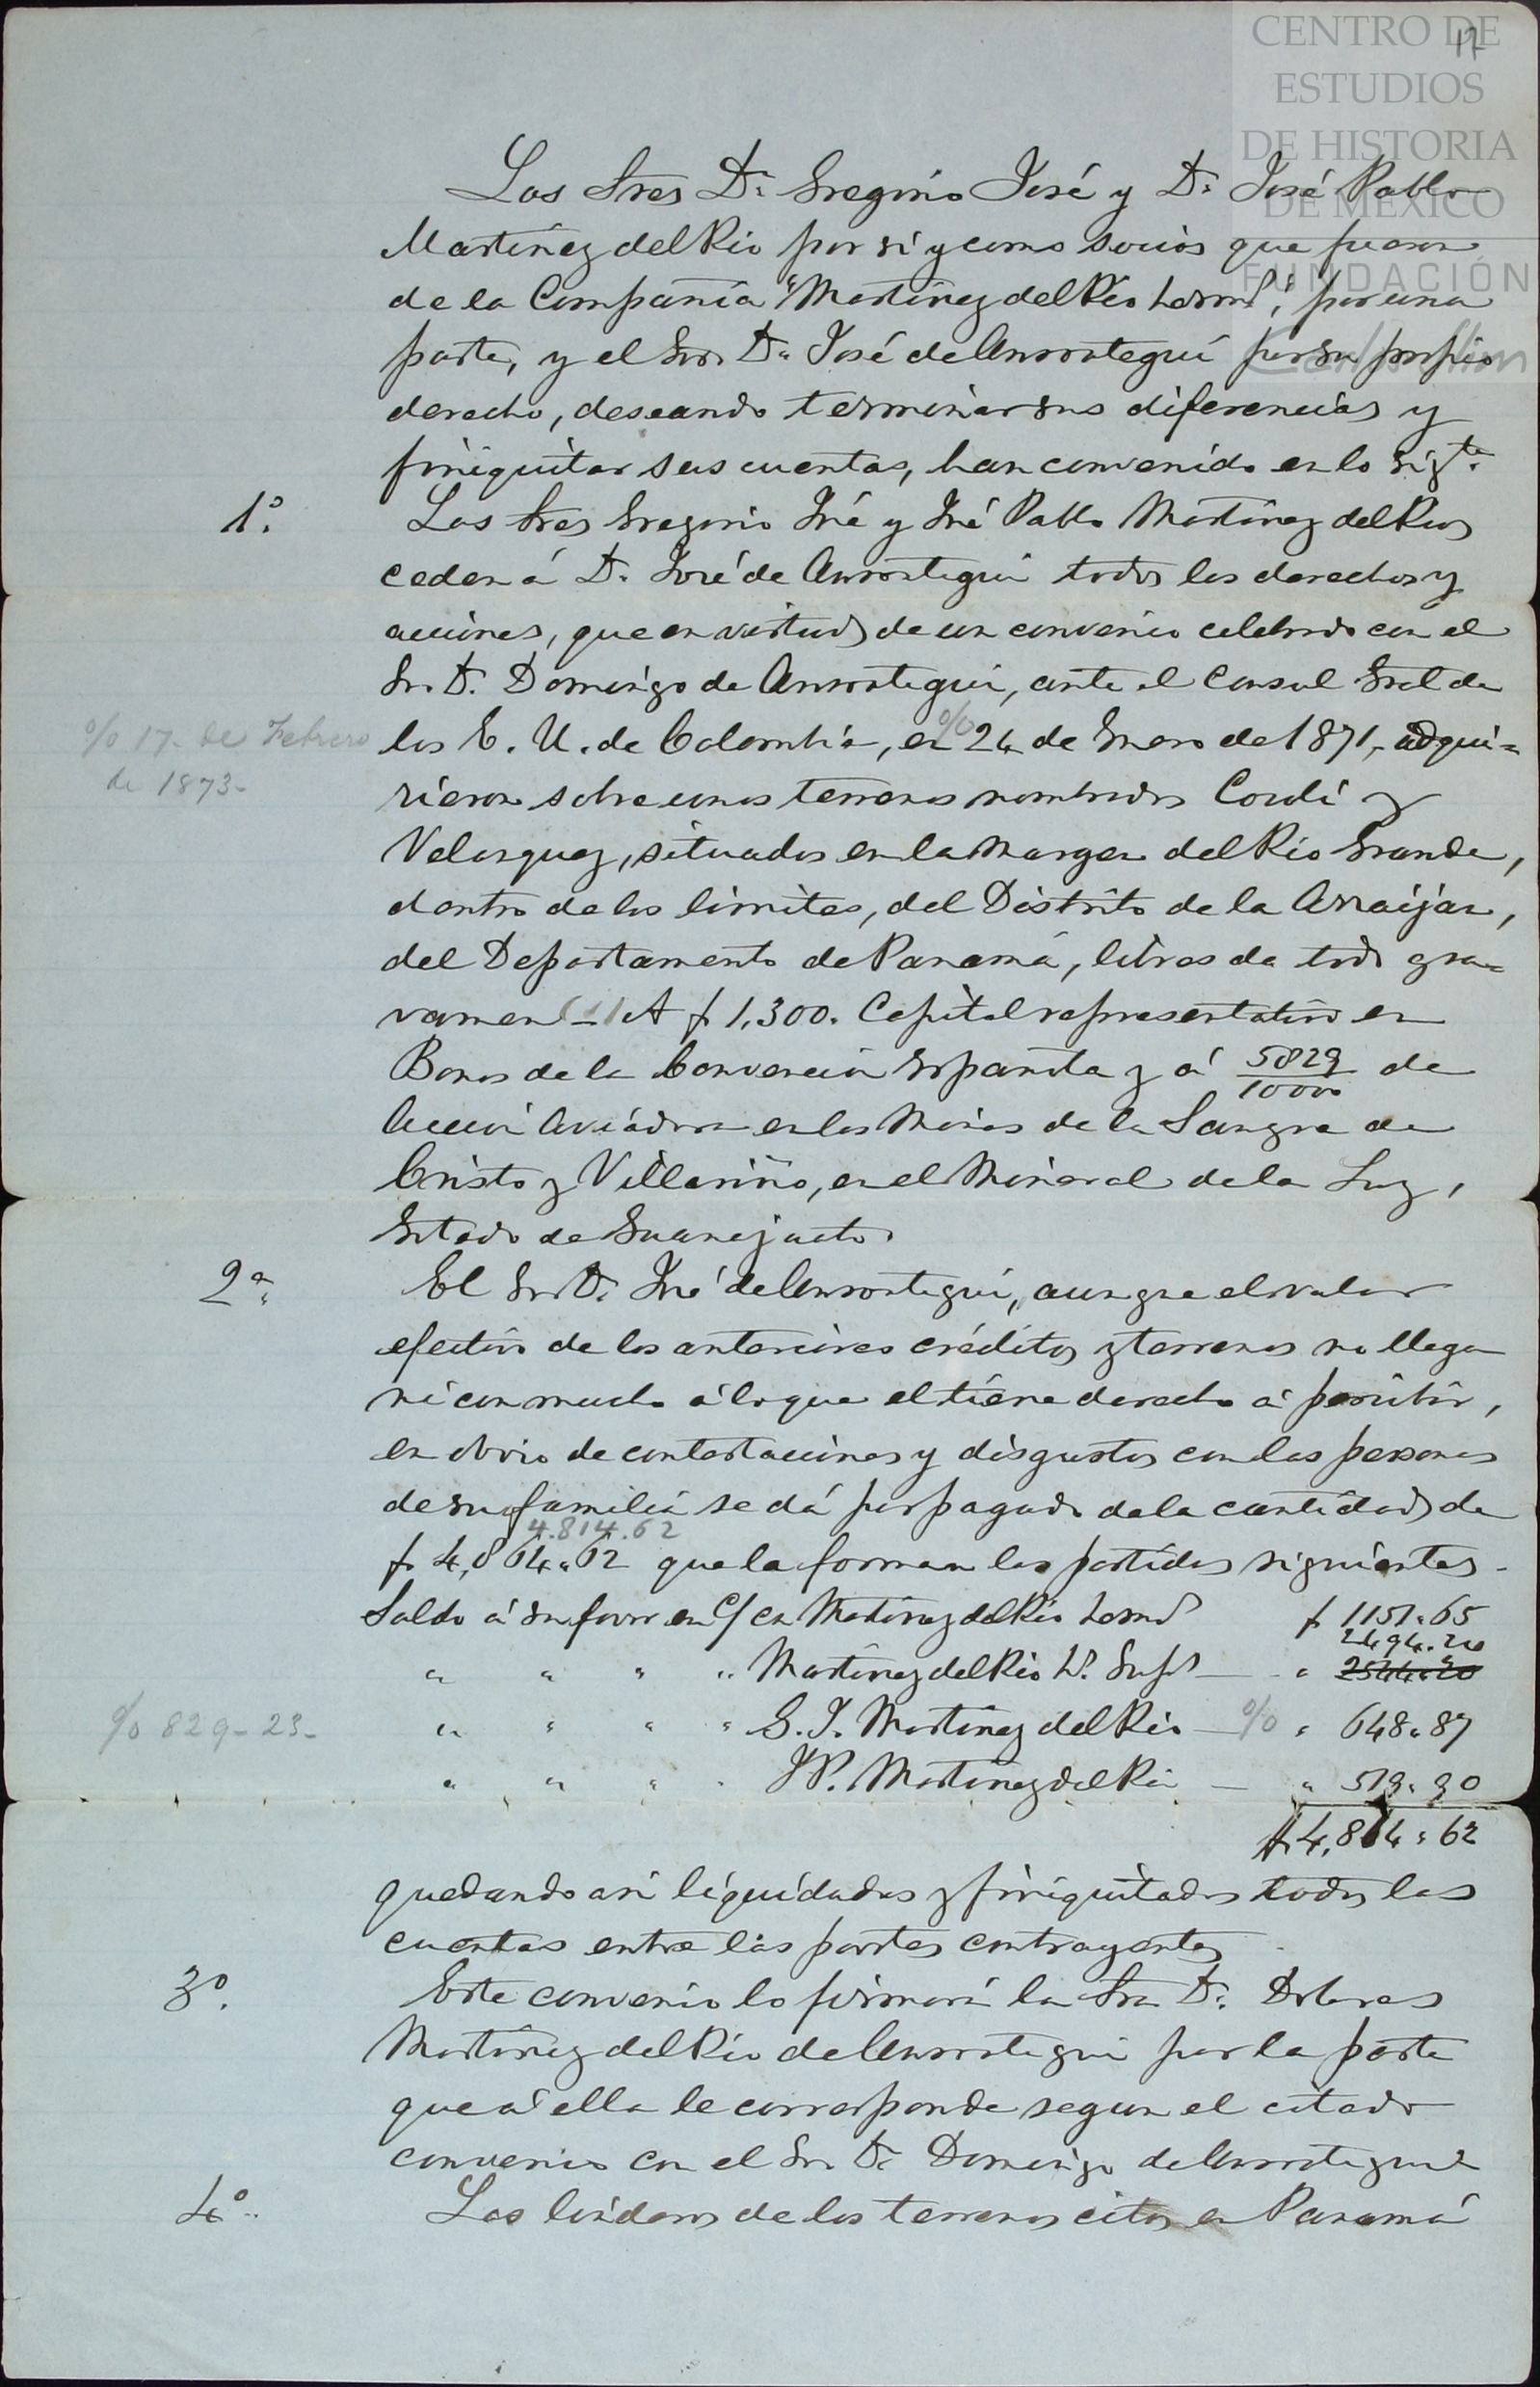 CENTRO DE
ESTUDIOS
DE HISTORIA
DE MÉXICO
FUNDACIÓN
17
Los Sres Dn Gregorio José y Dn José Pablo
Martinez del Rio por si y como socios que fueron
de la Compañia "Martinez del Rio herms", por una
parte, y el Sor. Dn José de Ansoategui por su propio
derecho, deseando terminar sus diferencias y
finiquitar sus cuentas, han convenido en lo sigte.
1º. Los Sres Gregorio José y José Pablo Martinez del Rio
ceden á D. José de Ansoategui todos los derechos y
acciones, que en virtud de un convenio celebrado con el
Sr. D. Domingo de Ansoategui, ante el Consul Gral de
los E. U. de Colombia, en % 24 de Enero de 1871, adqui=
% 17- de Febrero
de 1873-
rieron sobre unos terrenos nombrados Cordí y
Velasquez, situados en la margen del Rio Grande,
dentro de los limites, del Distrito de la Arraijan,
del Departamento de Panamá, libres de todo gra=
vamen - A $ 1,300. Capital representativo en
Bonos de la Convencion Española y á 5829/10000 de
Accion Aviadora en las Minas de la Sangre de
Cristo y Villariño, en el Mineral de la Luz,
Estado de Guanajuato.
2ª. El Sr. D. José de Ansoategui, aunque el valor
efectivo de los anteriores créditos y terrenos no llega
ni con mucho á lo que el tiene derecho á percibir,
en obvio de contestaciones y disgustos con las personas
de su familia se dá por pagado de la cantidad de
4.814.62
$ 4,814.62 que la forman las partidas siguientes.
Saldo á su favor en C/ con Martinez del Rio herms $ 1151.65
2494.20
" " " " Martinez del Rio H. — " 2544.20
% 829-23- " " " " G. J. Martinez del Rio — % " 648.87
" " " " J P. Martinez del Rio — " 519.90
$ 4,814.62
quedando asi liquidadas y finiquitadas todas las
cuentas entre las partes contrayentes
3º. Este convenio lo firmará la Sra Da. Dolores
Martinez del Rio de Ansoategui por la parte
que á ella le corresponde segun el citado
convenio con el Sr. Dn Domingo de Ansoategui
4º. Los linderos de los terrenos citos en Panamá